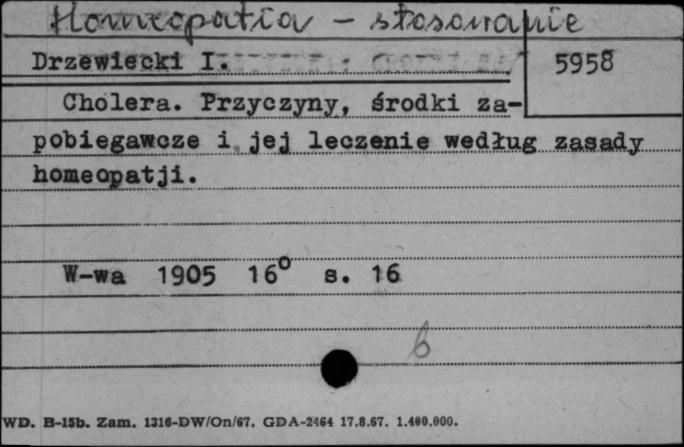 Homeopatia - stosowanie
Drzewiecki I.
5958
Cholera. Przyczyny, środki za-
pobiegawcze i jej leczenie według zasady
homeopatji.
W-wa 1905 16° s. 16
b
WD. B-15b. Zam. 1316-DW/On/67. GDA-2464 17.8.67. 1.400.000.